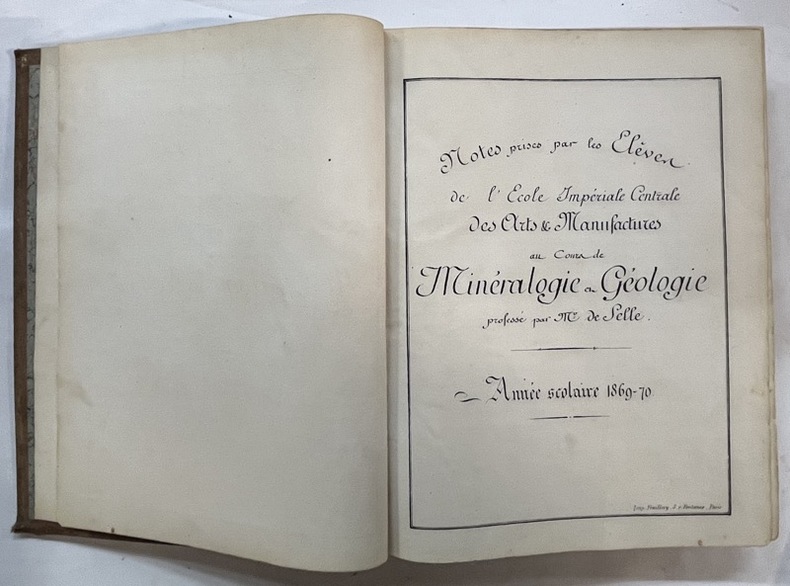 Notes prises par les Elèves
de l'Ecole Impériale Centrale
des Arts & Manufactures
au Cours de
Minéralogie et Géologie
professé par Mr de Selle.
Année scolaire 1869-70
Imp. Paris